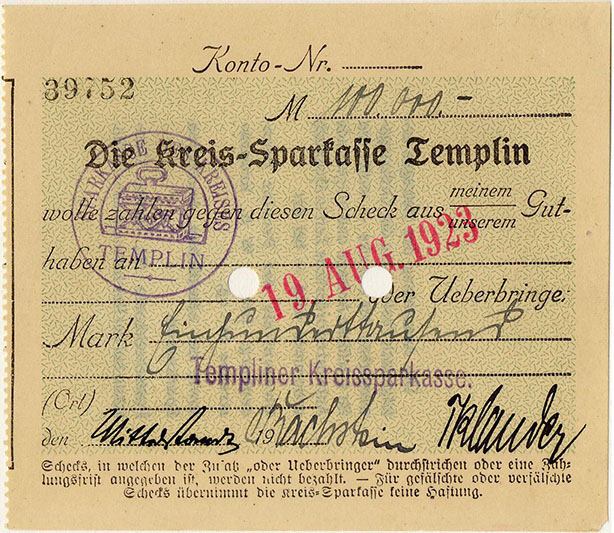 Konto-Nr.
39752
M 100,000.-
Die Kreis-Sparkasse Templin
wolle zahlen gegen diesen Scheck aus meinem
unserem Gut-
haben an
19. AUG. 1923
oder Ueberbringer
Mark Einhunderttausend
Templiner Kreissparkasse.
(Ort)
den 19
Schecks, in welchen der Zusatz „oder Ueberbringer“ durchstrichen oder eine Zah-
lungsfrist angegeben ist, werden nicht bezahlt. — Für gefälschte oder verfälschte
Schecks übernimmt die Kreis-Sparkasse keine Haftung.
TEMPLIN